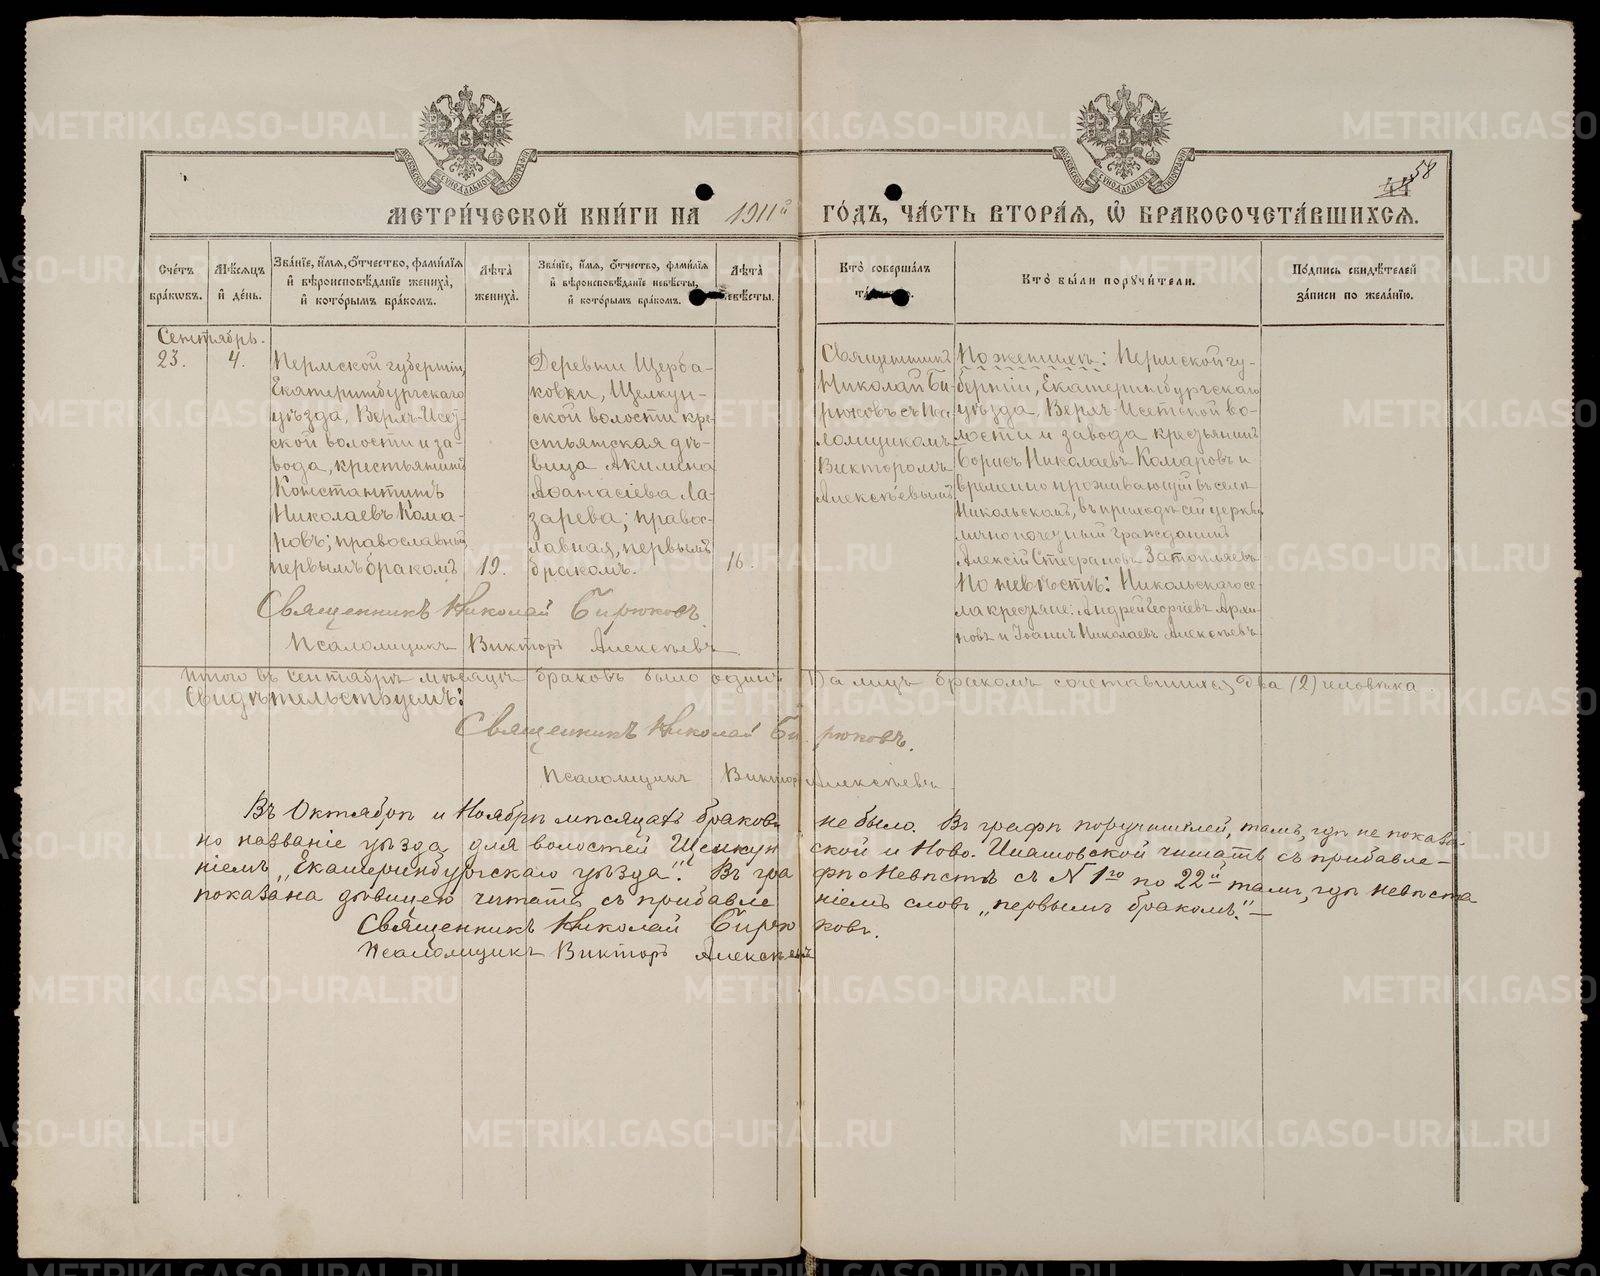 58
МЕТРИ́ЧЕСКОЙ КНИ́ГИ НА 1911й ГО́ДЪ, ЧА́СТЬ ВТОРА́Я, Ѡ БРАКОСОЧЕТА́ВШИХСЯ.
Сче́тъ бра́кωвъ.
Мѣ́сяцъ и́ де́нь.
Зва́нїе, и́мя, ѻ́тчество, фами́лїя и́ вѣроисповѣ́данїе жениха̀, и́ кото́рымъ бра́комъ.
Лѣта̀ жениха̀.
Зва́нїе, и́мя, ѻ́тчество, фами́лїя и́ вѣроисповѣ́данїе невѣ́сты, и́ кото́рымъ бра́комъ.
Лѣта̀ невѣ́сты.
Кто̀ соверша́лъ
Кто̀ бы́ли порꙋчи́тели.
По́дпись свидѣ́телей за́писи по жела́нїю.
Сентябрь.
23.
4.
Пермской губернiи,
Екатеринбургскаго
уѣзда, Верхъ-Исет-
ской волости и за-
вода, крестьянинъ
Константинъ
Николаевъ Кома-
ровъ; православный,
первымъ бракомъ
19.
Деревни Щерба-
ковки, Щелкун-
ской волости кре-
стьянская дѣ-
вица Акилина
Аѳанасiева Ла-
зарева; правос-
лавная, первымъ
бракомъ.
16.
Священникъ
Николай Би-
рюковъ съ Пса-
ломщикомъ
Викторомъ
Алексѣевымъ
По женихѣ: Пермской гу-
бернiи, Екатеринбургскаго
уѣзда, Верхъ-Исетской во-
лости и завода крестьянинъ
Борисъ Николаевъ Комаровъ и
временно проживающiй въ селѣ
Никольскомъ, въ приходѣ сей церкви
лично почетный гражданинъ
Алексiй Стефановъ Затопляевъ
По невѣстѣ: Никольскаго се-
ла крестьяне: Андрей Георгiевъ Архи-
повъ и Iоаннъ Николаевъ Алексѣевъ.
Священникъ Николай Бирюковъ.
Псаломщикъ Викторъ Алексѣевъ.
Итого въ Сентябрѣ мѣсяцѣ браковъ было одинъ 1) а лицъ бракомъ сочетавшихся два (2) человѣка.
Свидѣтельствуемъ:
Священникъ Николай Бирюковъ.
Псаломщикъ Викторъ Алексѣевъ
Въ Октябрѣ и Ноябрѣ мѣсяцахъ браковъ не было. Въ графѣ поручителей, тамъ, гдѣ не показа-
но названiе уѣзда для волостей Щелкунской и Ново-Ипатовской читать съ прибавле-
нiемъ „Екатеринбургскаго уѣзда". Въ графѣ о Невѣстѣ съ № 1го по 22й тамъ, гдѣ невѣста
показана дѣвицею читать съ прибавленiемъ словъ „первымъ бракомъ". —
Священникъ Николай Бирюковъ.
Псаломщикъ Викторъ Алексѣевъ
METRIKI.GASO-URAL.RU